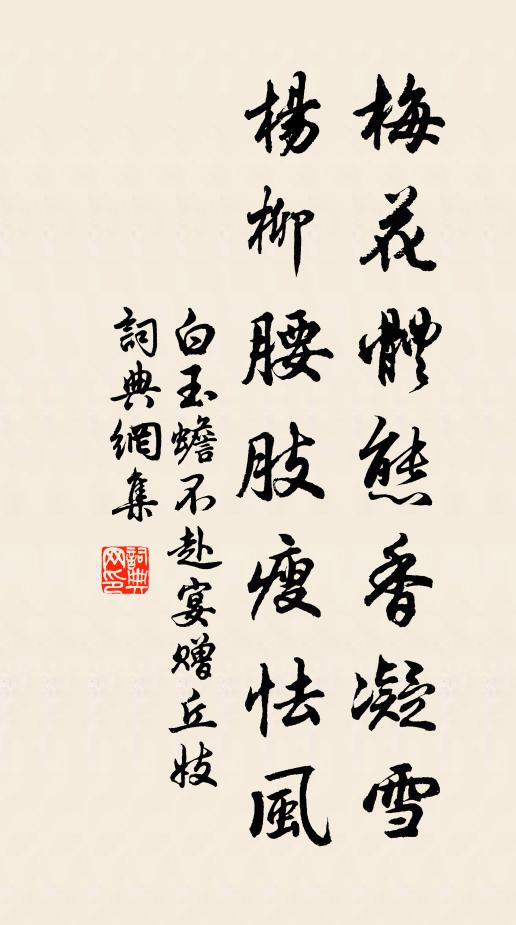 梅花體態香凝雪
楊柳腰肢瘦怯風
白玉蟾不赴宴贈丘妓
詞典網集
詞典網印